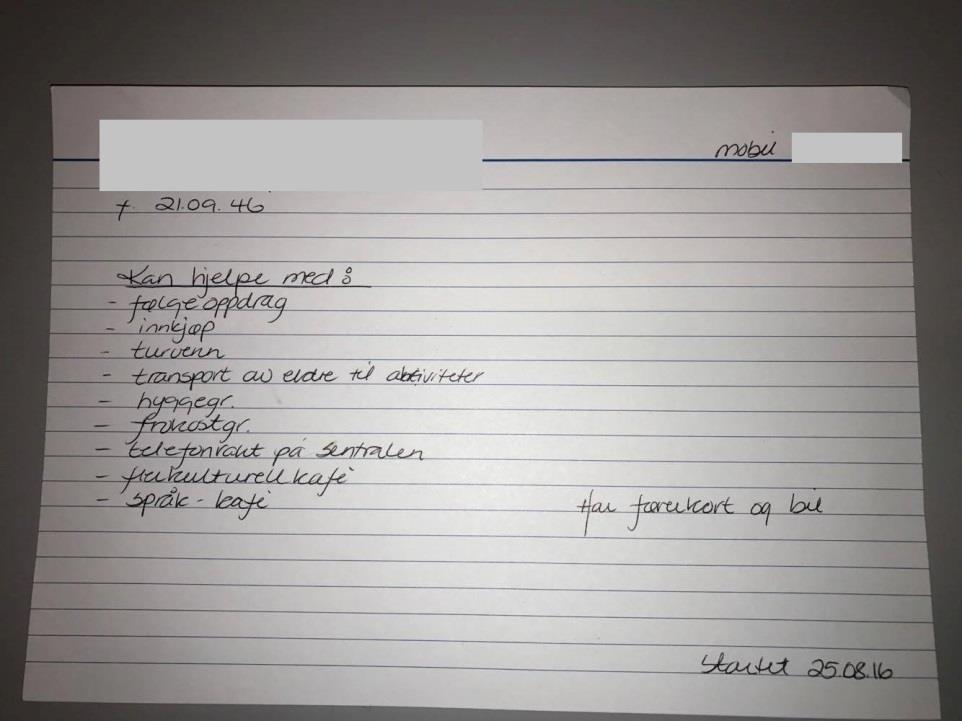 mobil
f. 21.09.46
Kan hjelpe med å
- følgeoppdrag
- innkjøp
- turvenn
- transport av eldre til aktiviteter
- hyggegr.
- frokostgr.
- telefonvakt på sentralen
- flerkulturell kafè
- språk-kafè
Har førerkort og bil
Startet 25.08.16